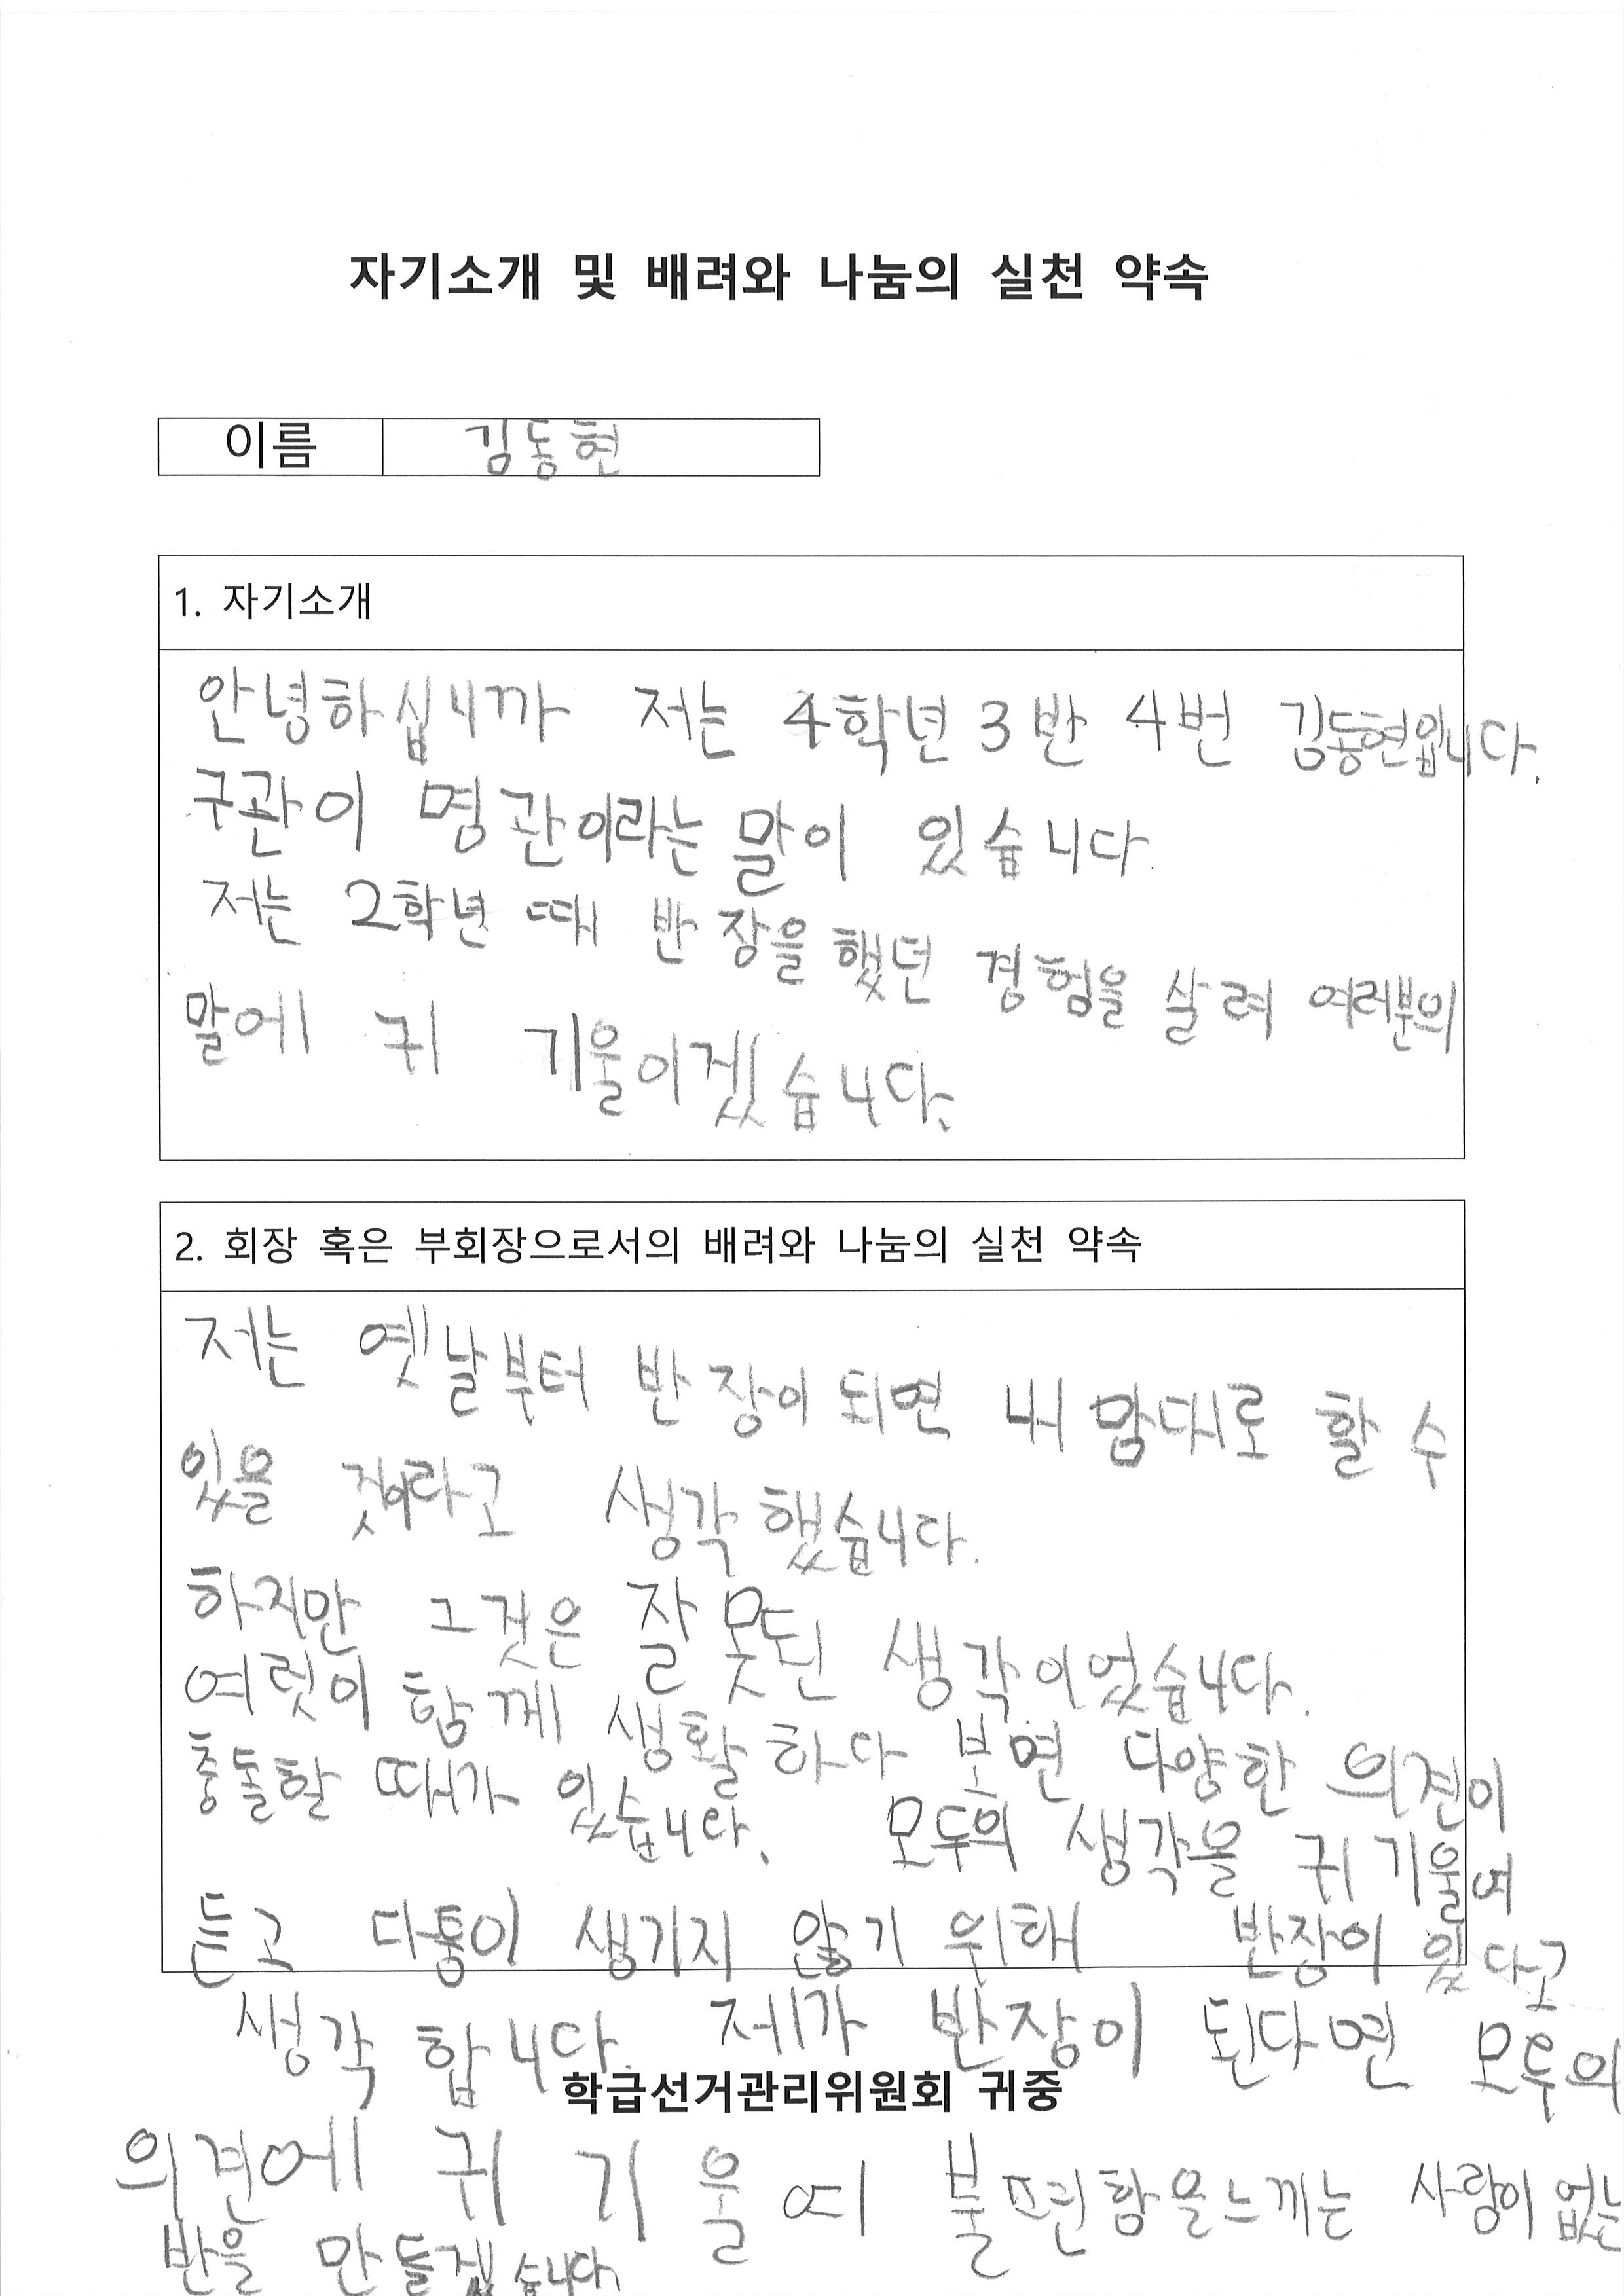 자기소개 및 배려와 나눔의 실천 약속
이름 김동현
1. 자기소개
안녕하십니까 저는 4학년 3반 4번 김동현입니다.
구관이 명관이라는 말이 있습니다.
저는 2학년 때 반장을 했던 경험을 살려 여러분의
말에 귀 기울이겠습니다.
2. 회장 혹은 부회장으로서의 배려와 나눔의 실천 약속
저는 옛날부터 반장이 되면 내 맘대로 할 수
있을 것이라고 생각했습니다.
하지만 그것은 잘못된 생각이었습니다.
여럿이 함께 생활하다 보면 다양한 의견이
충돌할 때가 있습니다. 모두의 생각을 귀 기울여
듣고 다툼이 생기지 않기 위해 반장이 있다고
생각합니다. 제가 반장이 된다면 모두의
학급선거관리위원회 귀중
의견에 귀 기울여 불편함을 느끼는 사람이 없는
반을 만들겠습니다.